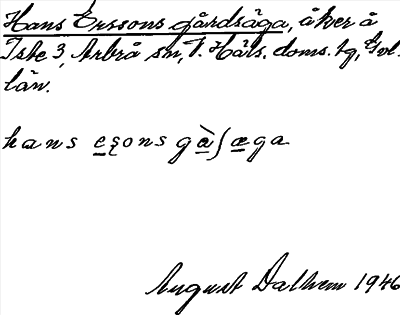 Hans Erssons gårdsäga, åker å
Iste 3, Arbrå sn, V. Häls. doms. tg, Gvl.
län.
hans eʂons gὰʃæga
August Dalhem 1946